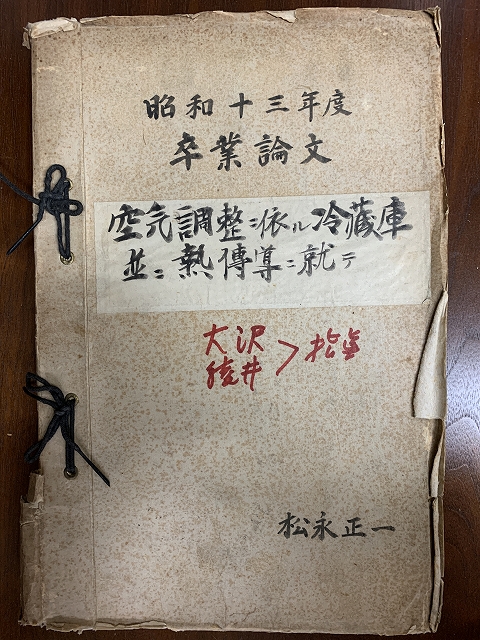 昭和十三年度
卒業論文
空気調整ニ依ル冷蔵庫
並ニ熱傳導ニ就テ
大沢
井 >
松永正一